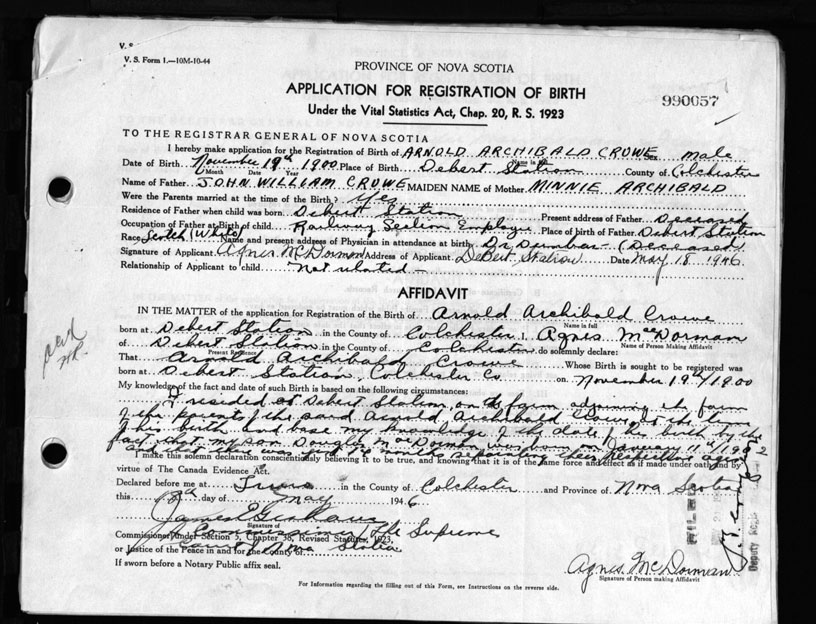 V. S. Form 1.—10M-10-44
PROVINCE OF NOVA SCOTIA
APPLICATION FOR REGISTRATION OF BIRTH
990057
Under the Vital Statistics Act, Chap. 20, R. S. 1923
TO THE REGISTRAR GENERAL OF NOVA SCOTIA
I hereby make application for the Registration of Birth of ARNOLD ARCHIBALD CROWE Sex male
Name in full
Date of Birth November 19th 1900 Place of Birth Debert Station County of Colchester
Month Date Year
Name of Father JOHN WILLIAM CROWE MAIDEN NAME of Mother MINNIE ARCHIBALD
Were the Parents married at the time of the Birth? yes
Residence of Father when child was born Debert Station Present address of Father Deceased
Occupation of Father at Birth of child Railway Section Employee Place of birth of Father Debert Station
Race Scotch (White) Name and present address of Physician in attendance at birth Dr Dunbar - (Deceased)
Signature of Applicant Agnes McDorman Address of Applicant DeBert Station Date May 18 1946
Relationship of Applicant to child Not related -
AFFIDAVIT
IN THE MATTER of the application for Registration of the Birth of Arnold Archibald Crowe
Name in full
born at Debert Station in the County of Colchester I, Agnes McDorman
Name of Person Making Affidavit
of Debert Station in the County of Colchester do solemnly declare:
Present Residence
That Arnold Archibald Crowe Whose Birth is sought to be registered was
born at Debert Station, Colchester Co on November 19th 1900
My knowledge of the fact and date of such Birth is based on the following circumstances:
I resided at Debert Station, on a farm adjoining the farm
of the parents of the said Arnold Archibald Crowe at the time
of his birth and base my knowledge of the date of his birth by the
fact that my son Douglas MacDorman was born on January 1st 1902
I make this solemn declaration conscientiously believing it to be true, and knowing that it is of the same force and effect as if made under oath and by
virtue of The Canada Evidence Act.
Declared before me at Truro in the County of Colchester and Province of Nova Scotia
this 18th day of May 1946
Signature of
Commissioner under Section 5, Chapter 38, Revised Statutes, 1923,
or Justice of the Peace in and for the county of
If sworn before a Notary Public affix seal.
Agnes McDorman
Signature of Person making Affidavit
For Information regarding the filling out of this Form, see Instructions on the reverse side.